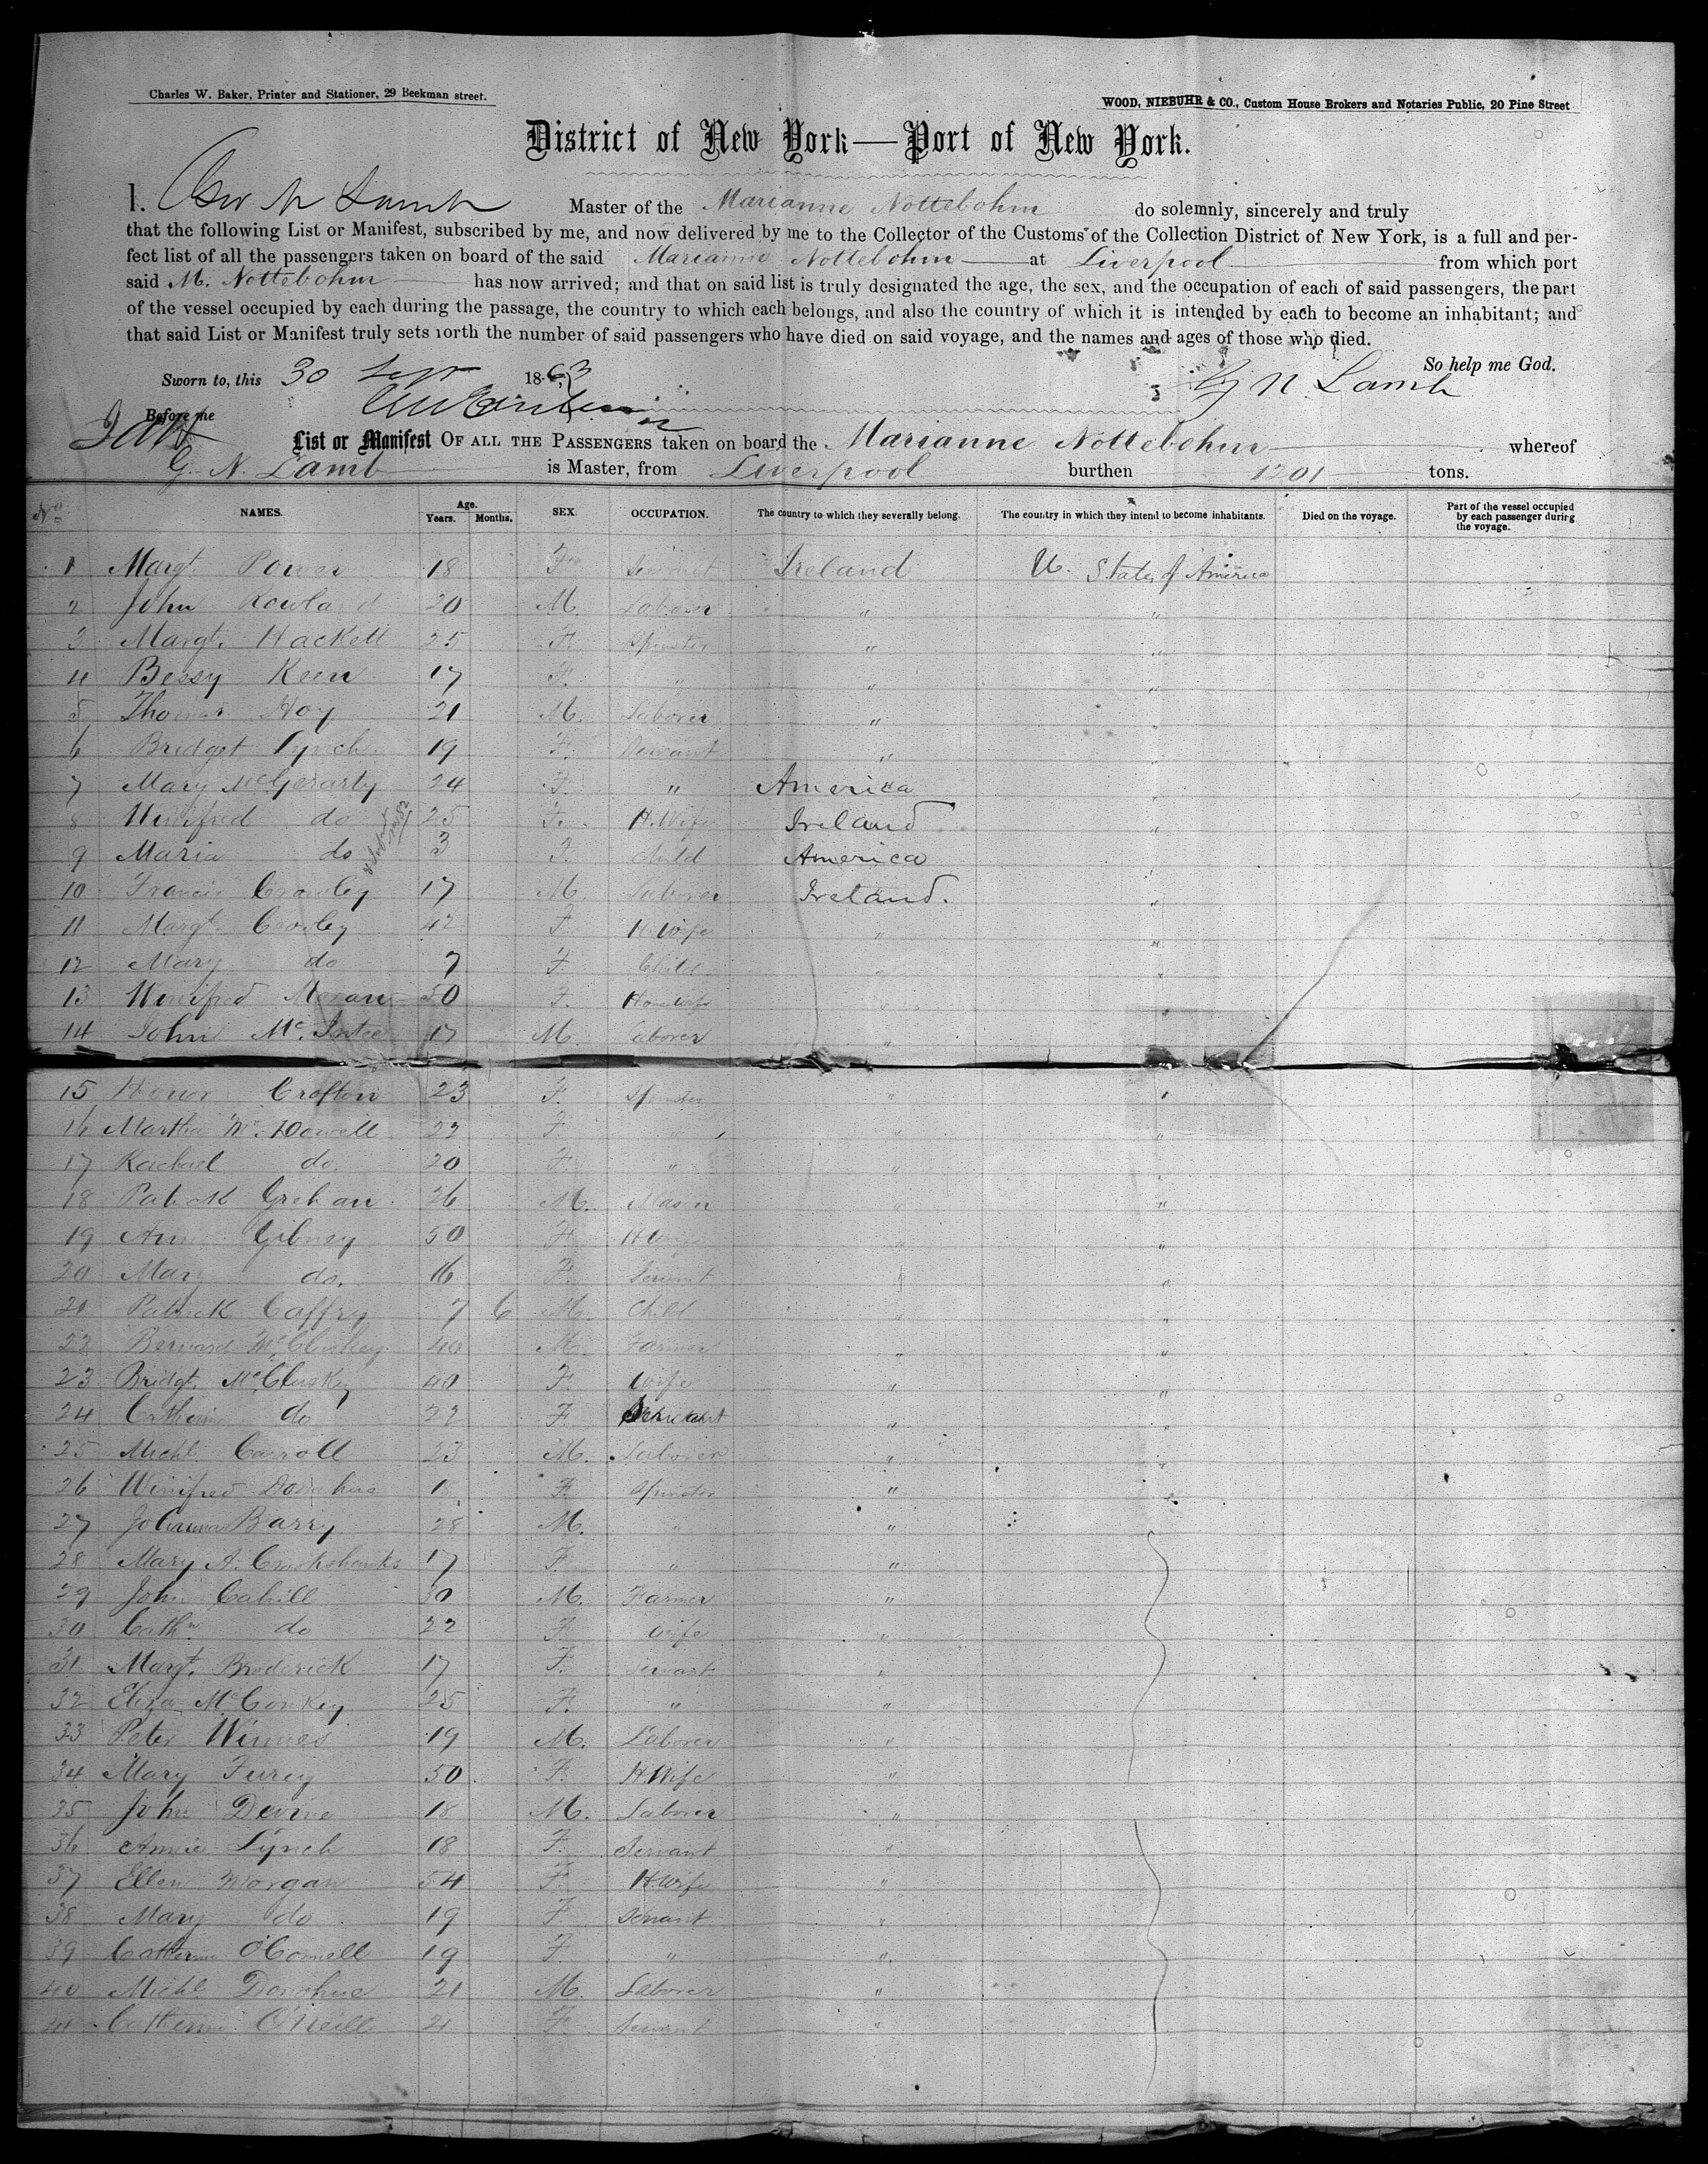 Charles W. Baker, Printer and Stationer, 29 Beekman street.
WOOD, NIEBUHR & CO., Custom House Brokers and Notaries Public, 20 Pine Street
District of New York—Port of New York.
I, Geo N Lamb Master of the Marianne Nottebohm do solemnly, sincerely and truly
that the following List or Manifest, subscribed by me, and now delivered by me to the Collector of the Customs of the Collection District of New York, is a full and per-
fect list of all the passengers taken on board of the said Marianne Nottebohm at Liverpool from which port
said M. Nottebohm has now arrived; and that on said list is truly designated the age, the sex, and the occupation of each of said passengers, the part
of the vessel occupied by each during the passage, the country to which each belongs, and also the country of which it is intended by each to become an inhabitant; and
that said List or Manifest truly sets forth the number of said passengers who have died on said voyage, and the names and ages of those who died.
So help me God.
Sworn to, this 30 Sept 1863
G N Lamb
Before me
List or Manifest OF ALL THE PASSENGERS taken on board the Marianne Nottebohm whereof
G. N. Lamb is Master, from Liverpool burthen 1201 tons.
No. NAMES. Age. Years. Months. SEX. OCCUPATION. The country to which they severally belong. The country in which they intend to become inhabitants. Died on the voyage. Part of the vessel occupied by each passenger during the voyage.
1 Margt. Power 18 F. Servant Ireland U. States of America
2 John Rowland 20 M. Laborer " "
3 Margt. Hackett 25 F. Spinster " "
4 Bessy Keen 17 F. " " "
5 Thomas Hoy 21 M. Laborer " "
6 Bridget Lynch 19 F. Servant " "
7 Mary McGerarty 24 F. " America "
8 Winifred do 25 F. H.Wife Ireland "
9 Maria do 3 F. Child America "
10 Francis Crowley 17 M. Laborer Ireland. "
11 Margt. Crowley 42 F. H.Wife " "
12 Mary do 7 F. Child " "
13 Winifred Moran 50 F. Housewife " "
14 John Mc. Entee 17 M. Laborer " "
15 Honor Crofton 23 F. Spinster " "
16 Martha Mc. Dowell 22 F. " " "
17 Rachael do. 20 F. " " "
18 Patrick Grehan 26 M. Mason " "
19 Ann Gibney 50 F. H.Wife " "
20 Mary do. 16 F. Servant " "
21 Patrick Caffry 7 6 M. Child " "
22 Bernard McCluskey 40 M. Farmer " "
23 Bridgt. McCluskey 40 F. Wife " "
24 Catherine do 22 F. Servant " "
25 Michl. Carroll 23 M. Laborer " "
26 Winifred Donahue F. Spinster " "
27 Johanna Barry 28 M. " "
28 Mary A. Crookshanks 17 F. " "
29 John Cahill 30 M. Farmer "
30 Cathn. do 22 F. Wife "
31 Margt. Broderick 17 F. Servant "
32 Eliza McConkey 25 F. " "
33 Peter Winnes 19 M. Laborer "
34 Mary Furey 50 F. H.Wife "
35 John Devine 18 M. Laborer "
36 Annie Lynch 18 F. Servant "
37 Ellen Morgan 54 F. H.Wife "
38 Mary do 19 F. Servant "
39 Catherine O'Connell 19 F. " "
40 Michl. Donohue 21 M. Laborer "
41 Catherine O'Neill 21 F. Servant "